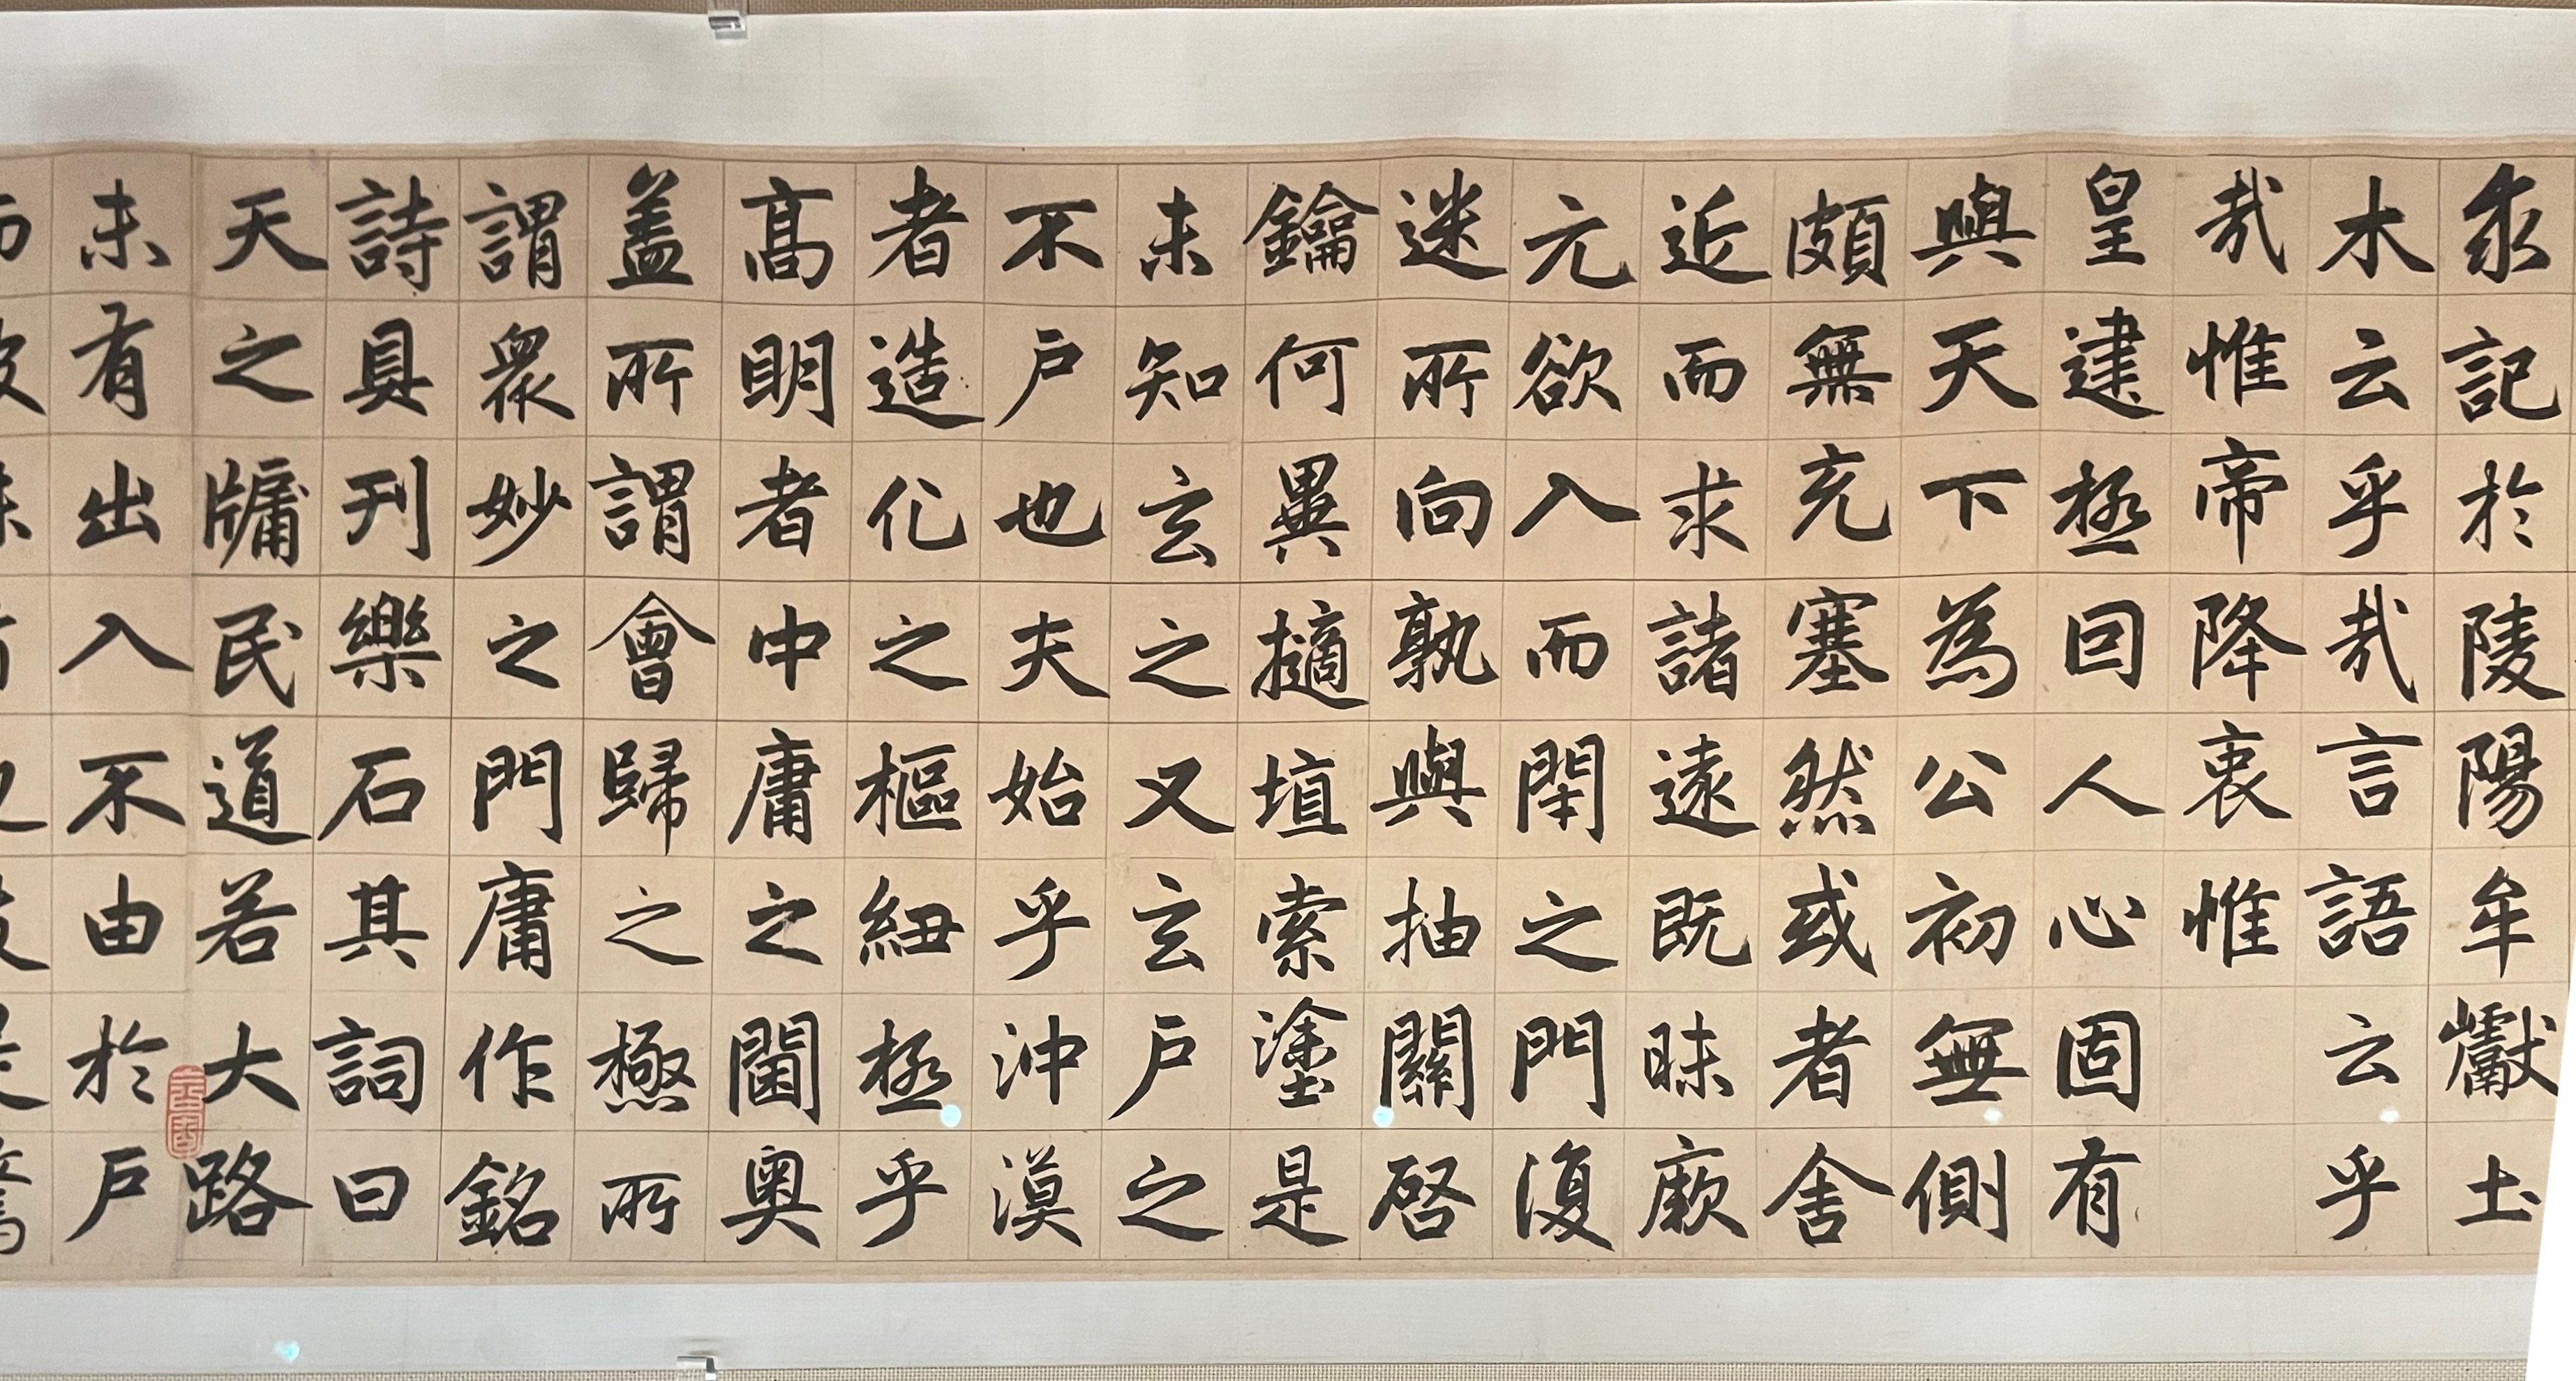 求記於陵陽牟巘土
木云乎哉言語云乎
哉惟帝降衷惟
皇建極囙人心固有
與天下為公初無側
頗無充塞然或者舍
近而求諸遠既昧厥
元欲入而閈之門復
迷所向孰與抽關啓
鑰何異擿埴索塗是
未知玄之又玄戶之
不戶也夫始乎沖漠
者造化之樞紐極乎
高明者中庸之閫奧
盖所謂會歸之極所
謂眾妙之門庸作銘
詩具刊樂石其詞曰
天之牖民道若大路
未有出入不由於戶